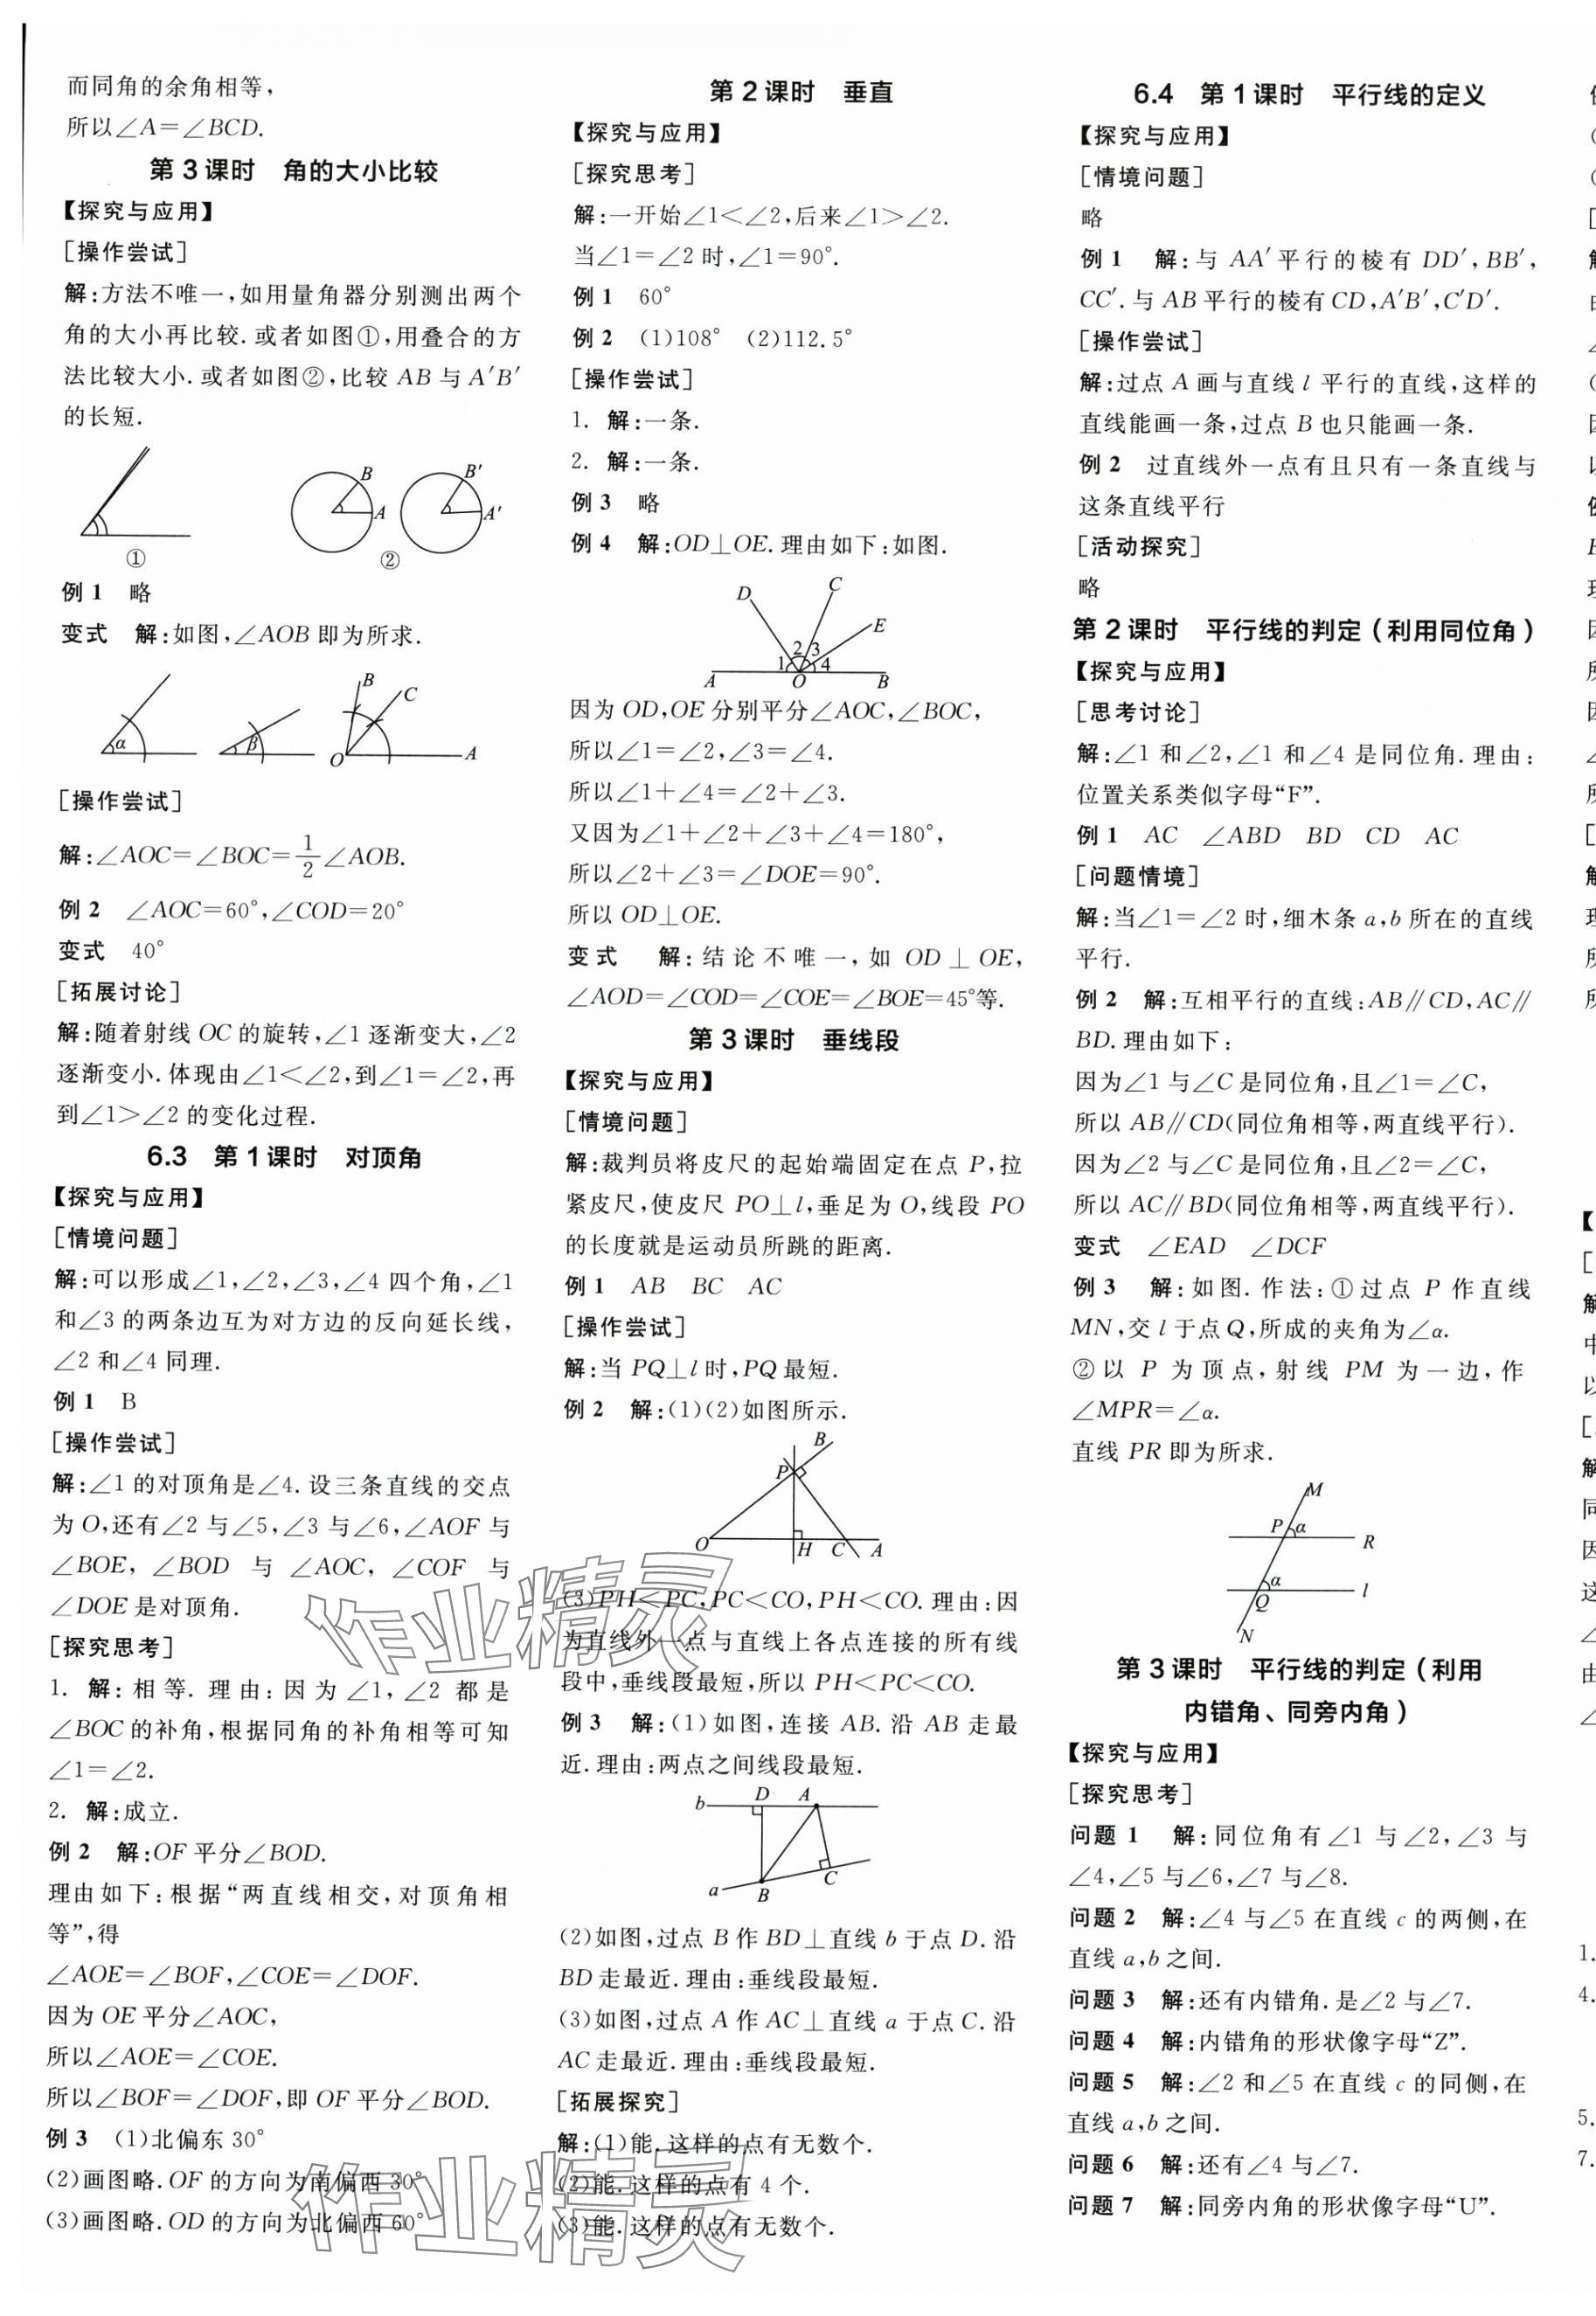 而同角的余角相等,
所以∠A=∠BCD.
第3课时 角的大小比较
【探究与应用】
[操作尝试]
解:方法不唯一,如用量角器分别测出两个
角的大小再比较.或者如图①,用叠合的方
法比较大小.或者如图②,比较 AB 与 A′B′
的长短.
B B′
A A′
① ②
例1 略
变式 解:如图,∠AOB 即为所求.
B
C
α β O A
[操作尝试]
解:∠AOC=∠BOC=1/2∠AOB.
例2 ∠AOC=60°,∠COD=20°
变式 40°
[拓展讨论]
解:随着射线 OC 的旋转,∠1 逐渐变大,∠2
逐渐变小.体现由∠1<∠2,到∠1=∠2,再
到∠1>∠2 的变化过程.
6.3 第1课时 对顶角
【探究与应用】
[情境问题]
解:可以形成∠1,∠2,∠3,∠4 四个角,∠1
和∠3 的两条边互为对方边的反向延长线,
∠2 和∠4 同理.
例1 B
[操作尝试]
解:∠1 的对顶角是∠4.设三条直线的交点
为 O,还有∠2 与∠5,∠3 与∠6,∠AOF 与
∠BOE, ∠BOD 与 ∠AOC, ∠COF 与
∠DOE 是对顶角.
[探究思考]
1. 解:相等.理由:因为∠1,∠2 都是
∠BOC 的补角,根据同角的补角相等可知
∠1=∠2.
2. 解:成立.
例2 解:OF 平分∠BOD.
理由如下:根据“两直线相交,对顶角相
等”,得
∠AOE=∠BOF,∠COE=∠DOF.
因为 OE 平分∠AOC,
所以∠AOE=∠COE.
所以∠BOF=∠DOF,即 OF 平分∠BOD.
例3 (1)北偏东 30°
(2)画图略.OF 的方向为南偏西 30°
(3)画图略.OD 的方向为北偏西 60°
第2课时 垂直
【探究与应用】
[探究思考]
解:一开始∠1<∠2,后来∠1>∠2.
当∠1=∠2 时,∠1=90°.
例1 60°
例2 (1)108° (2)112.5°
[操作尝试]
1. 解:一条.
2. 解:一条.
例3 略
例4 解:OD⊥OE.理由如下:如图.
D C
E
1 2 3 4
A O B
因为 OD,OE 分别平分∠AOC,∠BOC,
所以∠1=∠2,∠3=∠4.
所以∠1+∠4=∠2+∠3.
又因为∠1+∠2+∠3+∠4=180°,
所以∠2+∠3=∠DOE=90°.
所以 OD⊥OE.
变式 解:结论不唯一,如 OD⊥OE,
∠AOD=∠COD=∠COE=∠BOE=45°等.
第3课时 垂线段
【探究与应用】
[情境问题]
解:裁判员将皮尺的起始端固定在点 P,拉
紧皮尺,使皮尺 PO⊥l,垂足为 O,线段 PO
的长度就是运动员所跳的距离.
例1 AB BC AC
[操作尝试]
解:当 PQ⊥l 时,PQ 最短.
例2 解:(1)(2)如图所示.
B
P
O H C A
(3)PH<PC,PC<CO,PH<CO.理由:因
为直线外一点与直线上各点连接的所有线
段中,垂线段最短,所以 PH<PC<CO.
例3 解:(1)如图,连接 AB.沿 AB 走最
近.理由:两点之间线段最短.
b D A
a B C
(2)如图,过点 B 作 BD⊥直线 b 于点 D.沿
BD 走最近.理由:垂线段最短.
(3)如图,过点 A 作 AC⊥直线 a 于点 C.沿
AC 走最近.理由:垂线段最短.
[拓展探究]
解:(1)能.这样的点有无数个.
(2)能.这样的点有 4 个.
(3)能.这样的点有无数个.
6.4 第1课时 平行线的定义
【探究与应用】
[情境问题]
略
例1 解:与 AA′平行的棱有 DD′,BB′,
CC′.与 AB 平行的棱有 CD,A′B′,C′D′.
[操作尝试]
解:过点 A 画与直线 l 平行的直线,这样的
直线能画一条,过点 B 也只能画一条.
例2 过直线外一点有且只有一条直线与
这条直线平行
[活动探究]
略
第2课时 平行线的判定(利用同位角)
【探究与应用】
[思考讨论]
解:∠1 和∠2,∠1 和∠4 是同位角.理由:
位置关系类似字母“F”.
例1 AC ∠ABD BD CD AC
[问题情境]
解:当∠1=∠2 时,细木条 a,b 所在的直线
平行.
例2 解:互相平行的直线:AB∥CD,AC∥
BD.理由如下:
因为∠1 与∠C 是同位角,且∠1=∠C,
所以 AB∥CD(同位角相等,两直线平行).
因为∠2 与∠C 是同位角,且∠2=∠C,
所以 AC∥BD(同位角相等,两直线平行).
变式 ∠EAD ∠DCF
例3 解:如图.作法:①过点 P 作直线
MN,交 l 于点 Q,所成的夹角为∠α.
②以 P 为顶点,射线 PM 为一边,作
∠MPR=∠α.
直线 PR 即为所求.
M
P α R
α l
Q
N
第3课时 平行线的判定(利用
内错角、同旁内角)
【探究与应用】
[探究思考]
问题1 解:同位角有∠1 与∠2,∠3 与
∠4,∠5 与∠6,∠7 与∠8.
问题2 解:∠4 与∠5 在直线 c 的两侧,在
直线 a,b 之间.
问题3 解:还有内错角.是∠2 与∠7.
问题4 解:内错角的形状像字母“Z”.
问题5 解:∠2 和∠5 在直线 c 的同侧,在
直线 a,b 之间.
问题6 解:还有∠4 与∠7.
问题7 解:同旁内角的形状像字母“U”.
作业精灵
作业精灵